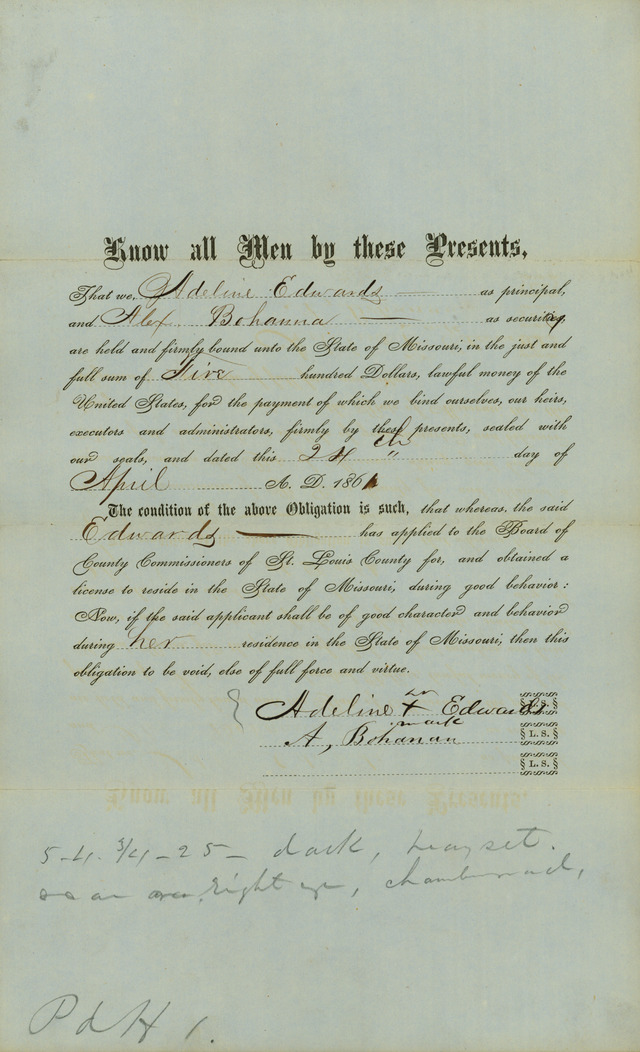 Know all Men by these Presents,
That we, Adeline Edwards as principal,
and Alex Bohanna as security,
are held and firmly bound unto the State of Missouri, in the just and
full sum of Five hundred Dollars, lawful money of the
United States, for the payment of which we bind ourselves, our heirs,
executors and administrators, firmly by these presents, sealed with
our seals, and dated this 24th day of
April A. D. 1861
The condition of the above Obligation is such, that whereas, the said
Edwards has applied to the Board of
County Commissioners of St. Louis County for, and obtained a
license to reside in the State of Missouri, during good behavior:
Now, if the said applicant shall be of good character and behavior
during her residence in the State of Missouri, then this
obligation to be void, else of full force and virtue.
her
Adeline X Edwards L. S.
mark
A, Bohanan L. S.
L. S.
5-4 3/4-25- dark, heavy set.
scar over right eye, chambermaid,
Pd H 1.